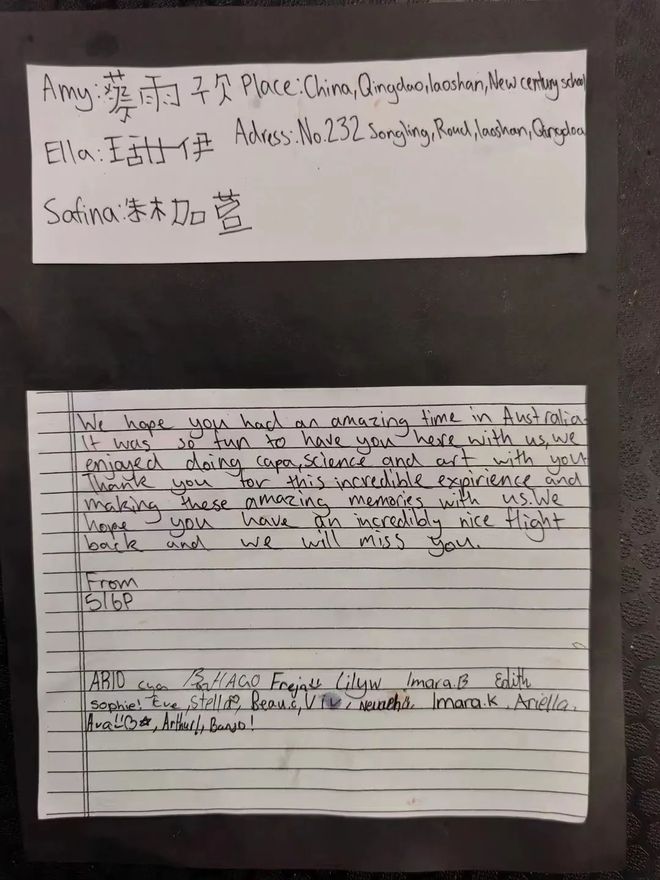 Amy:蔡雨 Place:China,Qingdao,laoshan,New century school
Ella: 伊 Adress:No.232 Songling,Roud,laoshan,Qingdoa
Safina:朱林加萱
We hope you had an amazing time in Australia.
It was so fun to have you here with us, we
enjoyed doing capa, science and art with you
Thank you for this incredible expirience and
making these amazing memories with us. We
hope you have an incredibly nice flight
back and we will miss you.
From
5/6P
ARIO HAGO Freja Lilyw Imara.B Edith
sophie! Eve, Stella, Beau.c, Viv, Imara.K, Ariella.
Ava, Arthur!, Banjo!